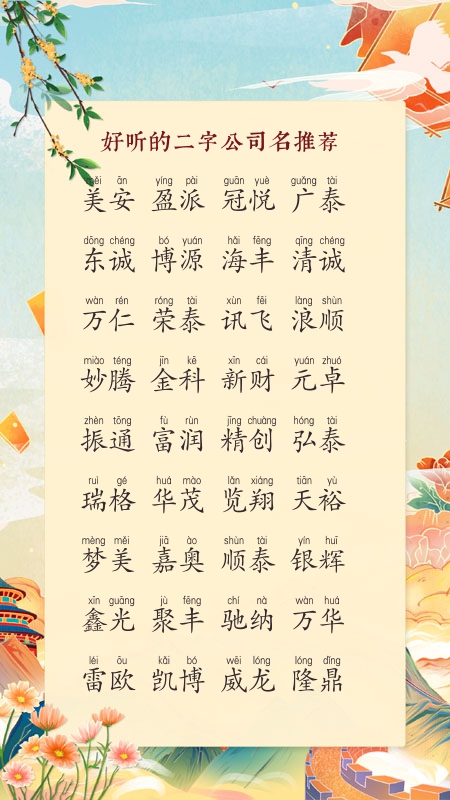 好听的二字公司名推荐
měi ān yíng pài guān yuè guǎng tài
美安 盈派 冠悦 广泰
dōng chéng bó yuán hǎi fēng qīng chéng
东诚 博源 海丰 清诚
wàn rén róng tài xùn fēi làng shùn
万仁 荣泰 讯飞 浪顺
miào téng jīn kē xīn cái yuán zhuó
妙腾 金科 新财 元卓
zhèn tōng fù rùn jīng chuàng hóng tài
振通 富润 精创 弘泰
ruì gé huá mào lǎn xiáng tiān yù
瑞格 华茂 览翔 天裕
mèng měi jiā ào shùn tài yín huī
梦美 嘉奥 顺泰 银辉
xīn guāng jù fēng chí nà wàn huá
鑫光 聚丰 驰纳 万华
léi ōu kǎi bó wēi lóng lóng dǐng
雷欧 凯博 威龙 隆鼎